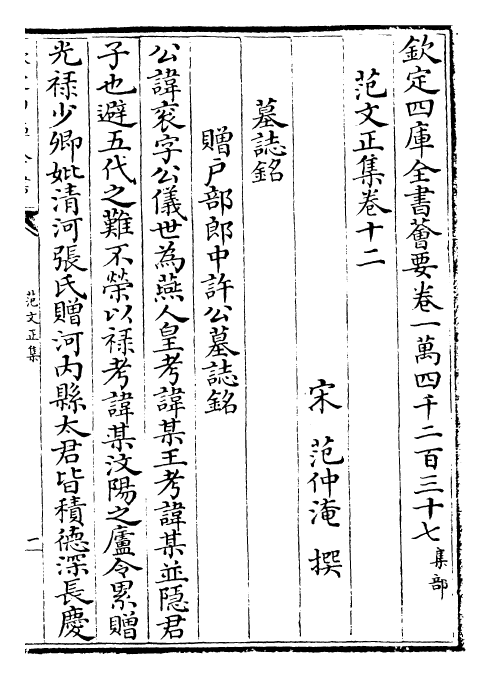 欽定四庫全書薈要卷一萬四千二百三十七集部
范文正集卷十二
宋 范仲淹 撰
墓誌銘
贈戶部郎中許公墓誌銘
公諱衮字公儀世為燕人皇考諱某王考諱某並隱君
子也避五代之難不榮以祿考諱某汶陽之廬令累贈
光祿少卿妣清河張氏贈河內縣太君皆積德深長慶
范文正集
一